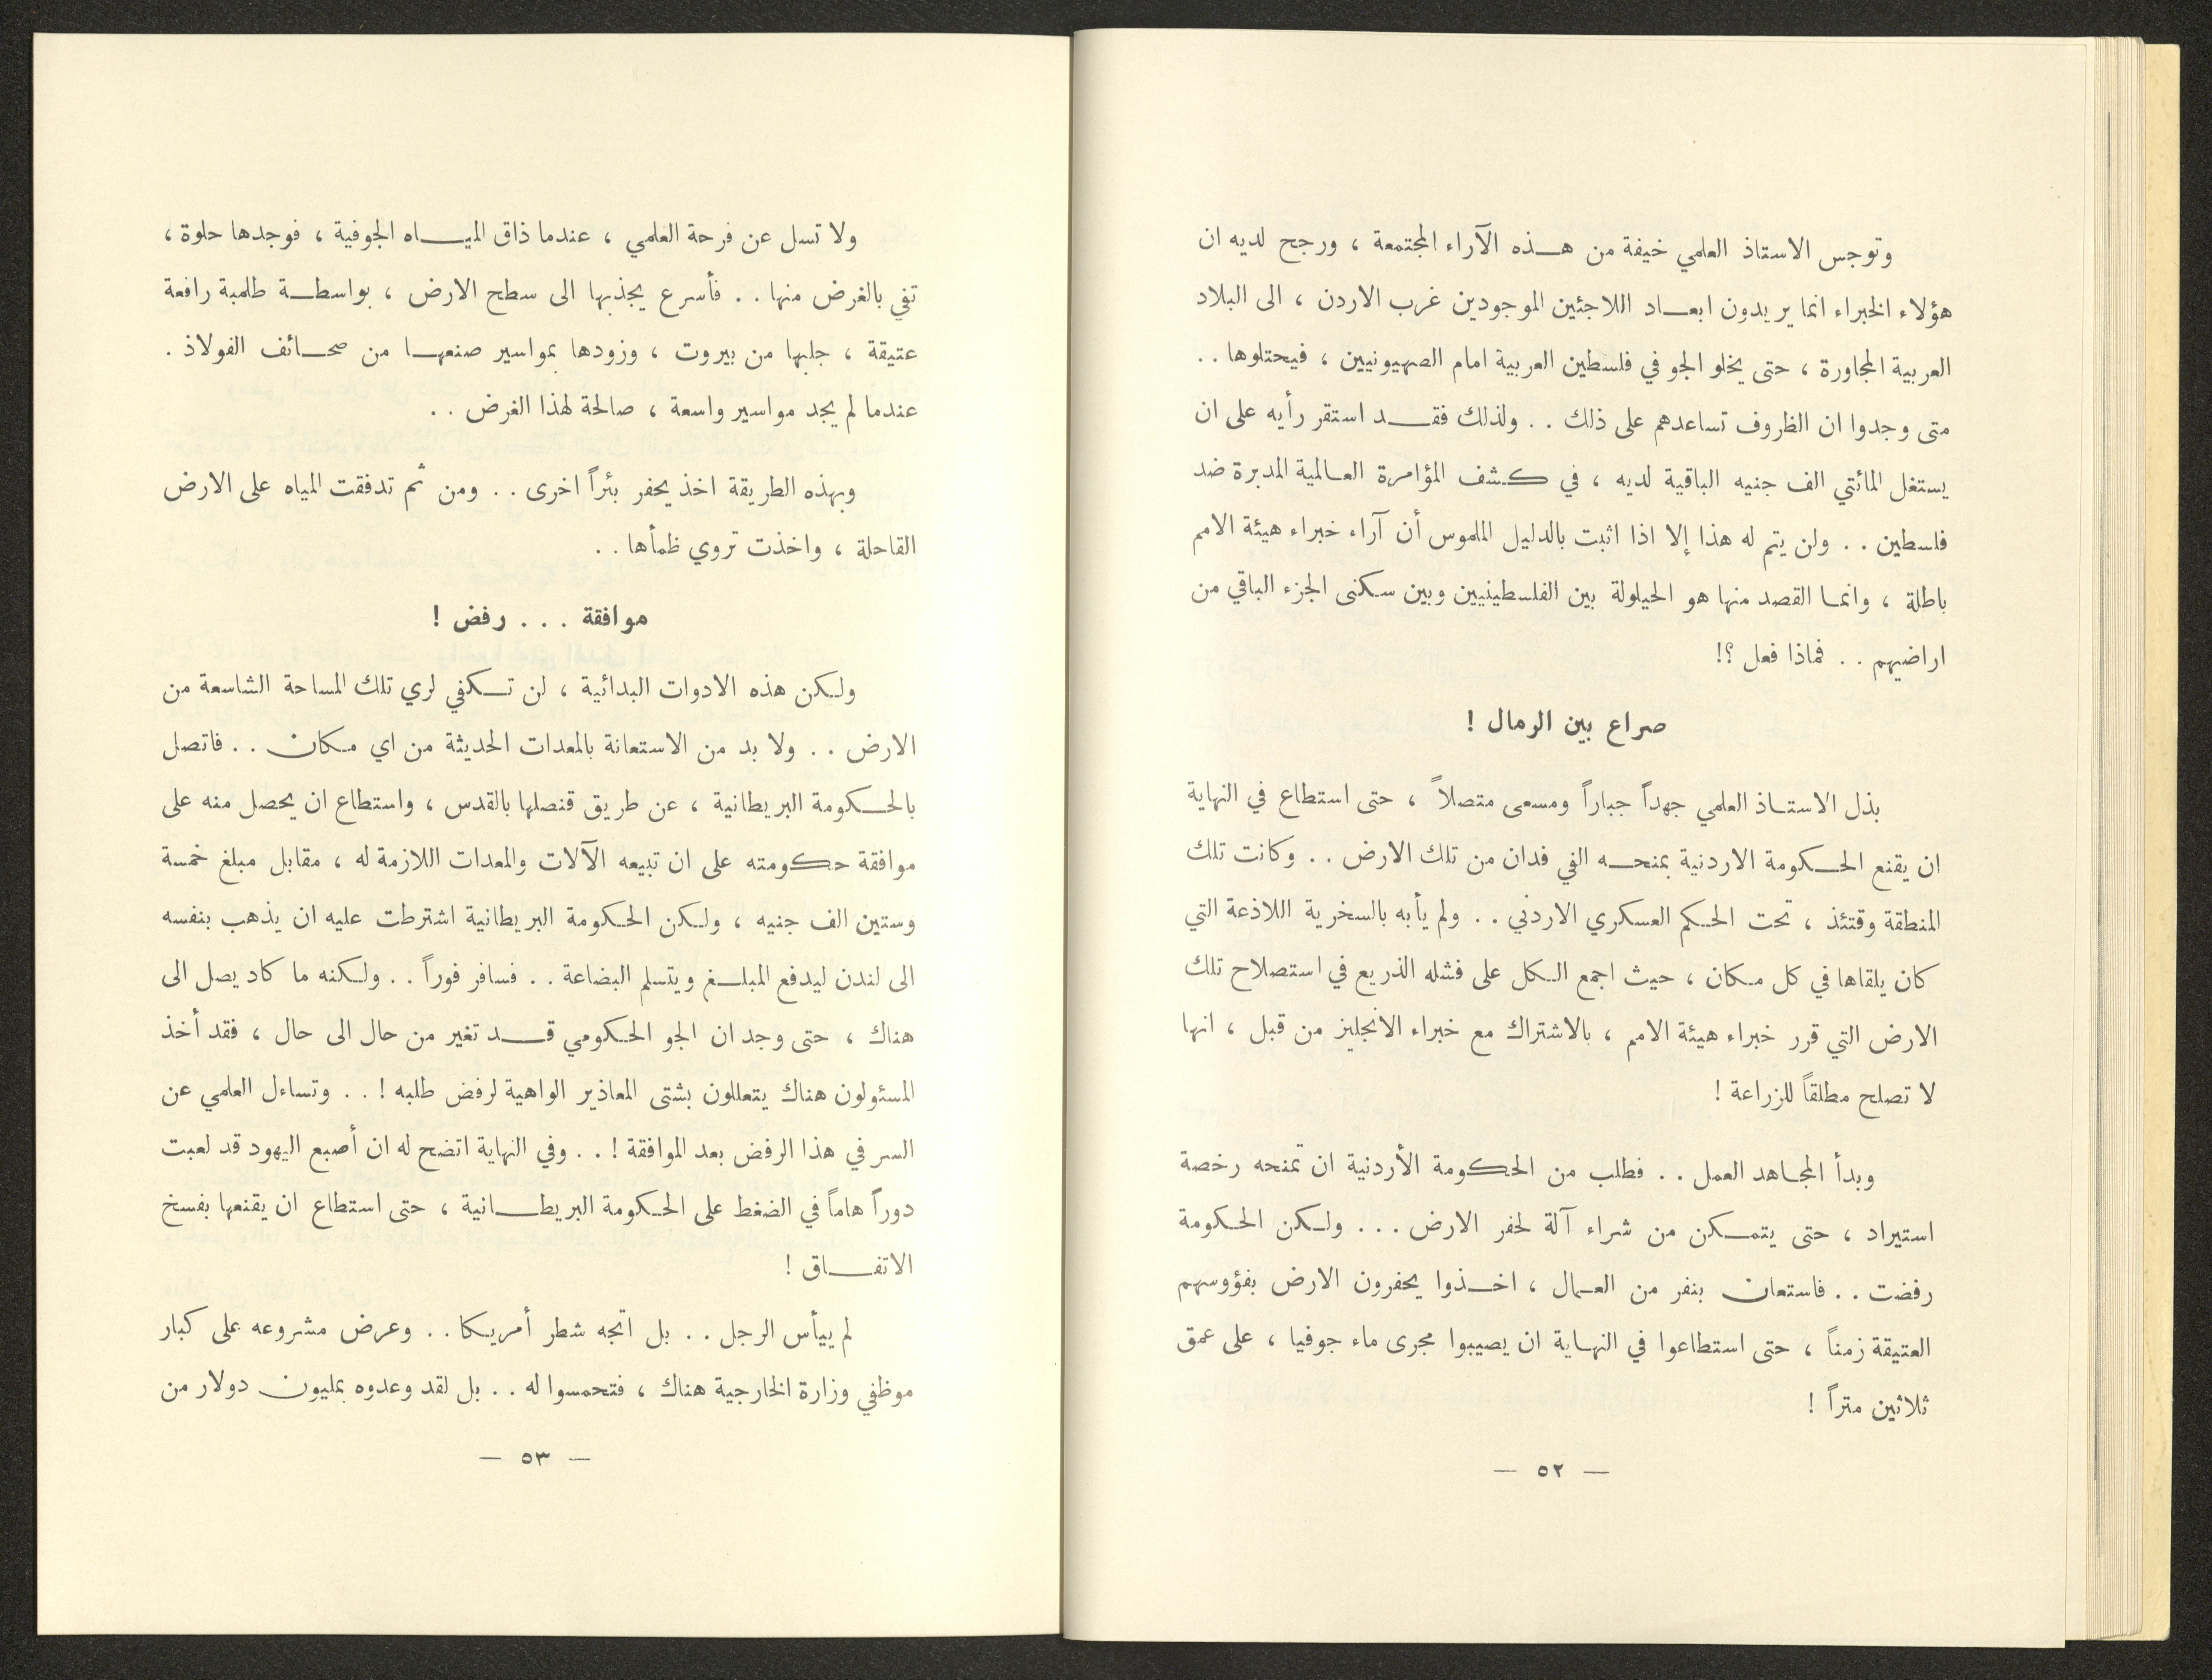 وتوجس الاستاذ العلمي خيفة من هذه الآراء المجتمعة ، ورجح لديه ان
هؤلاء الخبراء انما يريدون ابعاد اللاجئين الموجودين غرب الاردن ، الى البلاد
العربية المجاورة ، حتى يخلو الجو في فلسطين العربية امام الصهيونيين ، فيحتلوها . .
متى وجدوا ان الظروف تساعدهم على ذلك . . ولذلك فقد استقر رأيه على ان
يستغل المائتي الف جنيه الباقية لديه ، في كشف المؤامرة العالمية المدبرة ضد
فلسطين . . ولن يتم له هذا إلا اذا اثبت بالدليل الملموس أن آراء خبراء هيئة الامم
باطلة ، وانما القصد منها هو الحيلولة بين الفلسطينيين وبين سكنى الجزء الباقي من
اراضيهم . . فماذا فعل ؟!
صراع بين الرمال !
بذل الاستاذ العلمي جهداً جباراً ومسعى متصلاً ، حتى استطاع في النهاية
ان يقنع الحكومة الاردنية بمنحه الفي فدان من تلك الارض . . وكانت تلك
المنطقة وقتئذ ، تحت الحكم العسكري الاردني . . ولم يأبه بالسخرية اللاذعة التي
كان يلقاها في كل مكان ، حيث اجمع الكل على فشله الذريع في استصلاح تلك
الارض التي قرر خبراء هيئة الامم ، بالاشتراك مع خبراء الانجليز من قبل ، انها
لا تصلح مطلقاً للزراعة !
وبدأ المجاهد العمل . . فطلب من الحكومة الأردنية ان تمنحه رخصة
استيراد ، حتى يتمكن من شراء آلة لحفر الارض . . . ولكن الحكومة
رفضت . . فاستعان بنفر من العمال ، اخذوا يحفرون الارض بفؤوسهم
العتيقة زمناً ، حتى استطاعوا في النهاية ان يصيبوا مجرى ماء جوفيا ، على عمق
ثلاثين متراً !
— ٥٢ —
ولا تسل عن فرحة العلمي ، عندما ذاق المياه الجوفية ، فوجدها حلوة ،
تفي بالغرض منها . . فأسرع يجذبها الى سطح الارض ، بواسطة طلمبة رافعة
عتيقة ، جلبها من بيروت ، وزودها بمواسير صنعها من صحائف الفولاذ .
عندما لم يجد مواسير واسعة ، صالحة لهذا الغرض . .
وبهذه الطريقة اخذ يحفر بئراً اخرى . . ومن ثم تدفقت المياه على الارض
القاحلة ، واخذت تروي ظمأها . .
موافقة . . . رفض !
ولكن هذه الادوات البدائية ، لن تكفي لري تلك المساحة الشاسعة من
الارض . . ولا بد من الاستعانة بالمعدات الحديثة من اي مكان . . فاتصل
بالحكومة البريطانية ، عن طريق قنصلها بالقدس ، واستطاع ان يحصل منه على
موافقة حكومته على ان تبيعه الآلات والمعدات اللازمة له ، مقابل مبلغ خمسة
وستين الف جنيه ، ولكن الحكومة البريطانية اشترطت عليه ان يذهب بنفسه
الى لندن ليدفع المبلغ ويتسلم البضاعة . . فسافر فوراً . . ولكنه ما كاد يصل الى
هناك ، حتى وجد ان الجو الحكومي قد تغير من حال الى حال ، فقد أخذ
المسئولون هناك يتعللون بشتى المعاذير الواهية لرفض طلبه ! . . وتساءل العلمي عن
السر في هذا الرفض بعد الموافقة ! . . وفي النهاية اتضح له ان أصبع اليهود قد لعبت
دوراً هاماً في الضغط على الحكومة البريطانية ، حتى استطاع ان يقنعها بفسخ
الاتفاق !
لم ييأس الرجل . . بل اتجه شطر أمريكا . . وعرض مشروعه على كبار
موظفي وزارة الخارجية هناك ، فتحمسوا له . . بل لقد وعدوه بمليون دولار من
— ٥٣ —